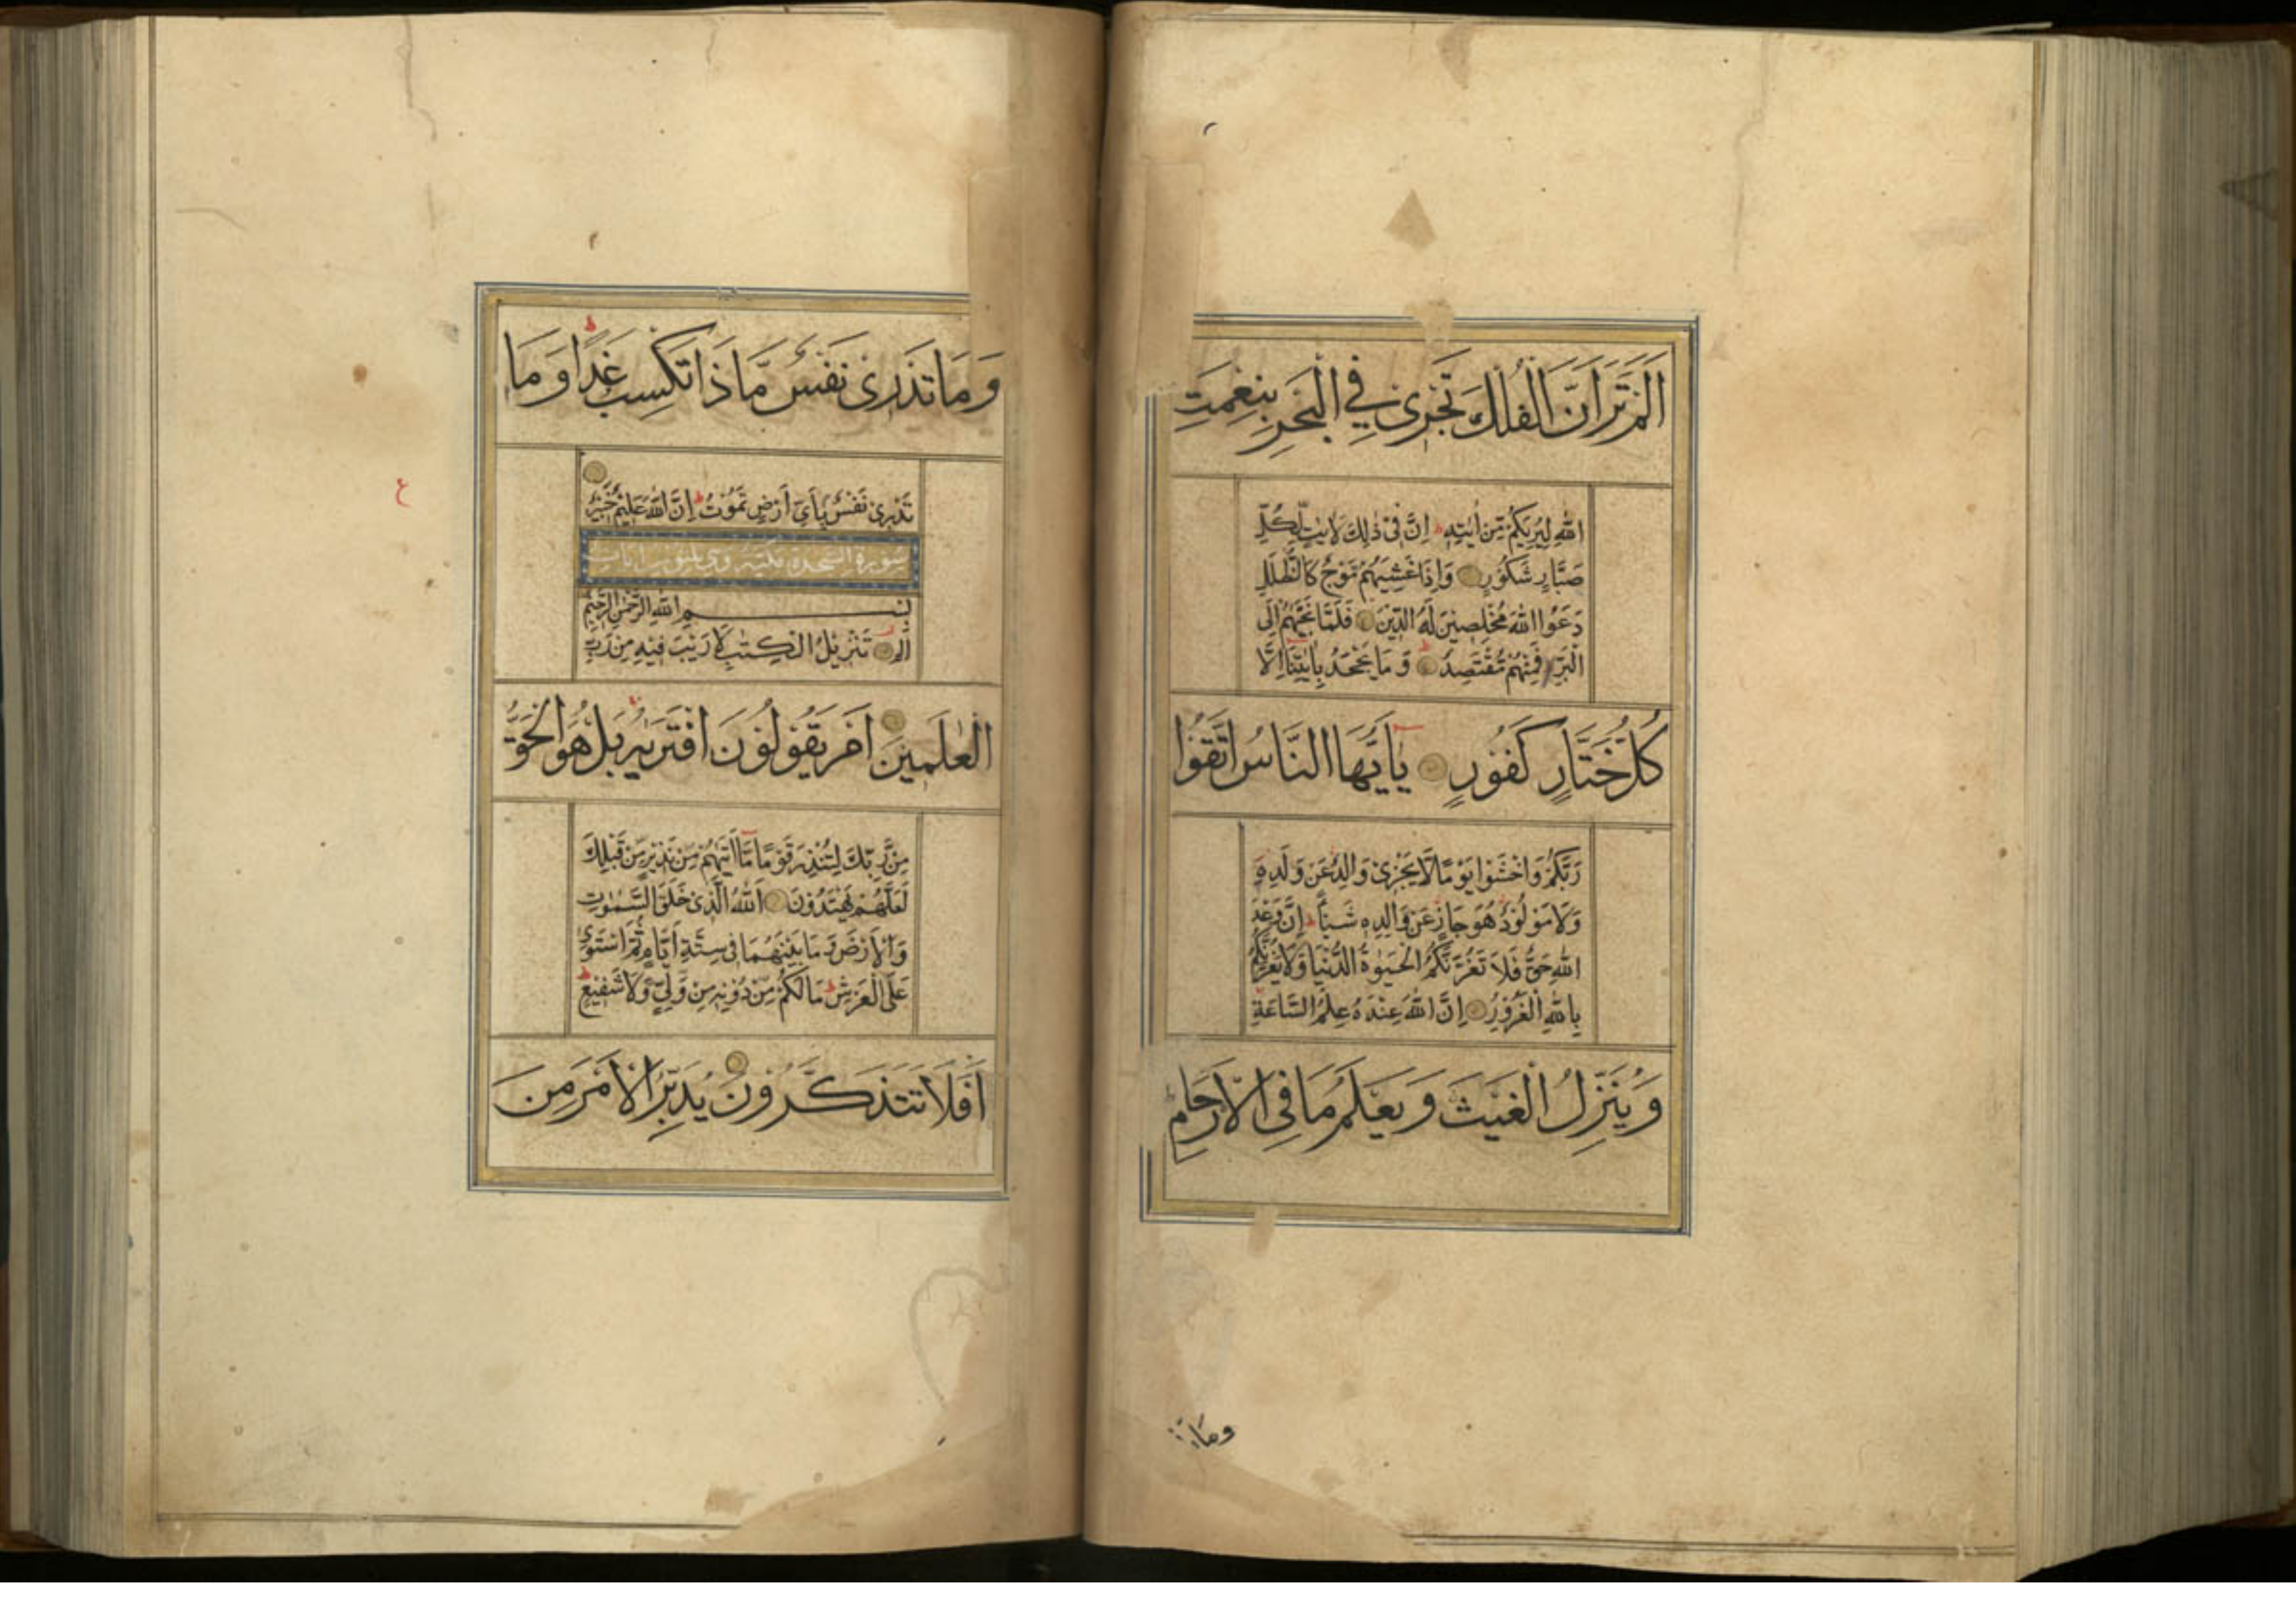 اَلَمْ تَرَ اَنَّ الْفُلْكَ تَجْرِيْ فِي الْبَحْرِ بِنِعْمَتِ
اللّٰهِ لِيُرِيَكُمْ مِّنْ اٰيٰتِهٖ ط اِنَّ فِيْ ذٰلِكَ لَاٰيٰتٍ لِّكُلِّ
صَبَّارٍ شَكُوْرٍ وَاِذَا غَشِيَهُمْ مَّوْجٌ كَالظُّلَلِ
دَعَوُا اللّٰهَ مُخْلِصِيْنَ لَهُ الدِّيْنَ فَلَمَّا نَجّٰىهُمْ اِلَى
الْبَرِّ فَمِنْهُمْ مُّقْتَصِدٌ ط وَمَا يَجْحَدُ بِاٰيٰتِنَا اِلَّا
كُلُّ خَتَّارٍ كَفُوْرٍ يٰاَيُّهَا النَّاسُ اتَّقُوْا
رَبَّكُمْ وَاخْشَوْا يَوْمًا لَّا يَجْزِيْ وَالِدٌ عَنْ وَّلَدِهٖ
وَلَا مَوْلُوْدٌ هُوَ جَازٍ عَنْ وَّالِدِهٖ شَيْـًٔا ط اِنَّ وَعْدَ
اللّٰهِ حَقٌّ فَلَا تَغُرَّنَّكُمُ الْحَيٰوةُ الدُّنْيَا وَلَا يَغُرَّنَّكُمْ
بِاللّٰهِ الْغَرُوْرُ اِنَّ اللّٰهَ عِنْدَهٗ عِلْمُ السَّاعَةِ
وَيُنَزِّلُ الْغَيْثَ وَيَعْلَمُ مَا فِي الْاَرْحَامِ ط
وما
وَمَا تَدْرِيْ نَفْسٌ مَّاذَا تَكْسِبُ غَدًا ط وَمَا
تَدْرِيْ نَفْسٌ بِاَيِّ اَرْضٍ تَمُوْتُ ط اِنَّ اللّٰهَ عَلِيْمٌ خَبِيْرٌ
ع
سورة السجدة مكية وهي ثلثون ايات
بِسْمِ اللّٰهِ الرَّحْمٰنِ الرَّحِيْمِ
الٓمّٓ تَنْزِيْلُ الْكِتٰبِ لَا رَيْبَ فِيْهِ مِنْ رَّبِّ
الْعٰلَمِيْنَ اَمْ يَقُوْلُوْنَ افْتَرٰىهُ بَلْ هُوَ الْحَقُّ
مِنْ رَّبِّكَ لِتُنْذِرَ قَوْمًا مَّا اَتٰىهُمْ مِّنْ نَّذِيْرٍ مِّنْ قَبْلِكَ
لَعَلَّهُمْ يَهْتَدُوْنَ اَللّٰهُ الَّذِيْ خَلَقَ السَّمٰوٰتِ
وَالْاَرْضَ وَمَا بَيْنَهُمَا فِيْ سِتَّةِ اَيَّامٍ ثُمَّ اسْتَوٰى
عَلَى الْعَرْشِ ط مَا لَكُمْ مِّنْ دُوْنِهٖ مِنْ وَّلِيٍّ وَّلَا شَفِيْعٍ ط
اَفَلَا تَتَذَكَّرُوْنَ يُدَبِّرُ الْاَمْرَ مِنَ